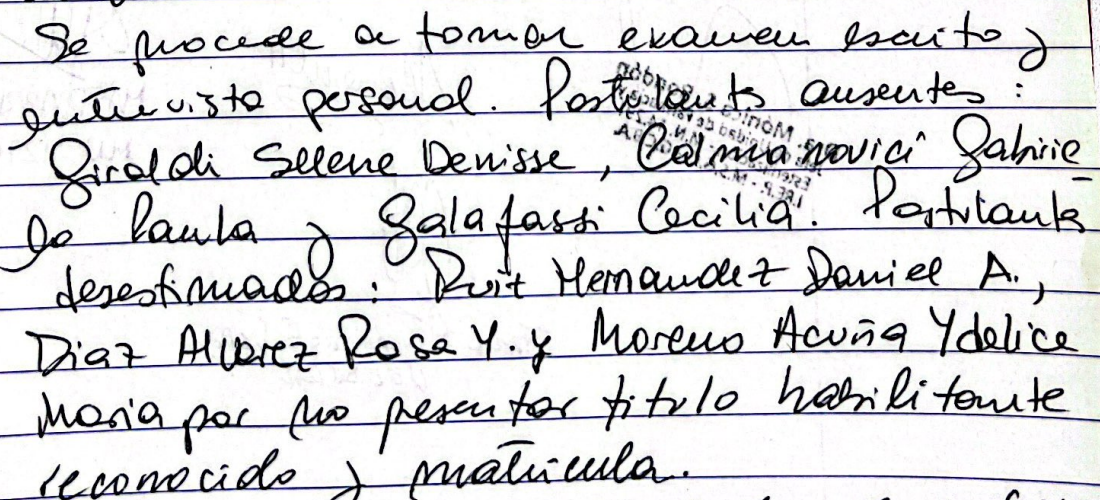 Se procede a tomar examen escrito y
entrevista personal. Postulants ausentes :
Giraldi Selene Denisse, Calmanovici Gabrie-
la Paula y Galafassi Cecilia. Postulants
desestimados: Ruiz Hernandez Daniel A.,
Diaz Alvarez Rosa Y. y Moreno Acuña Ydelice
Maria por no presentar titulo habilitante
reconocido y matricula.